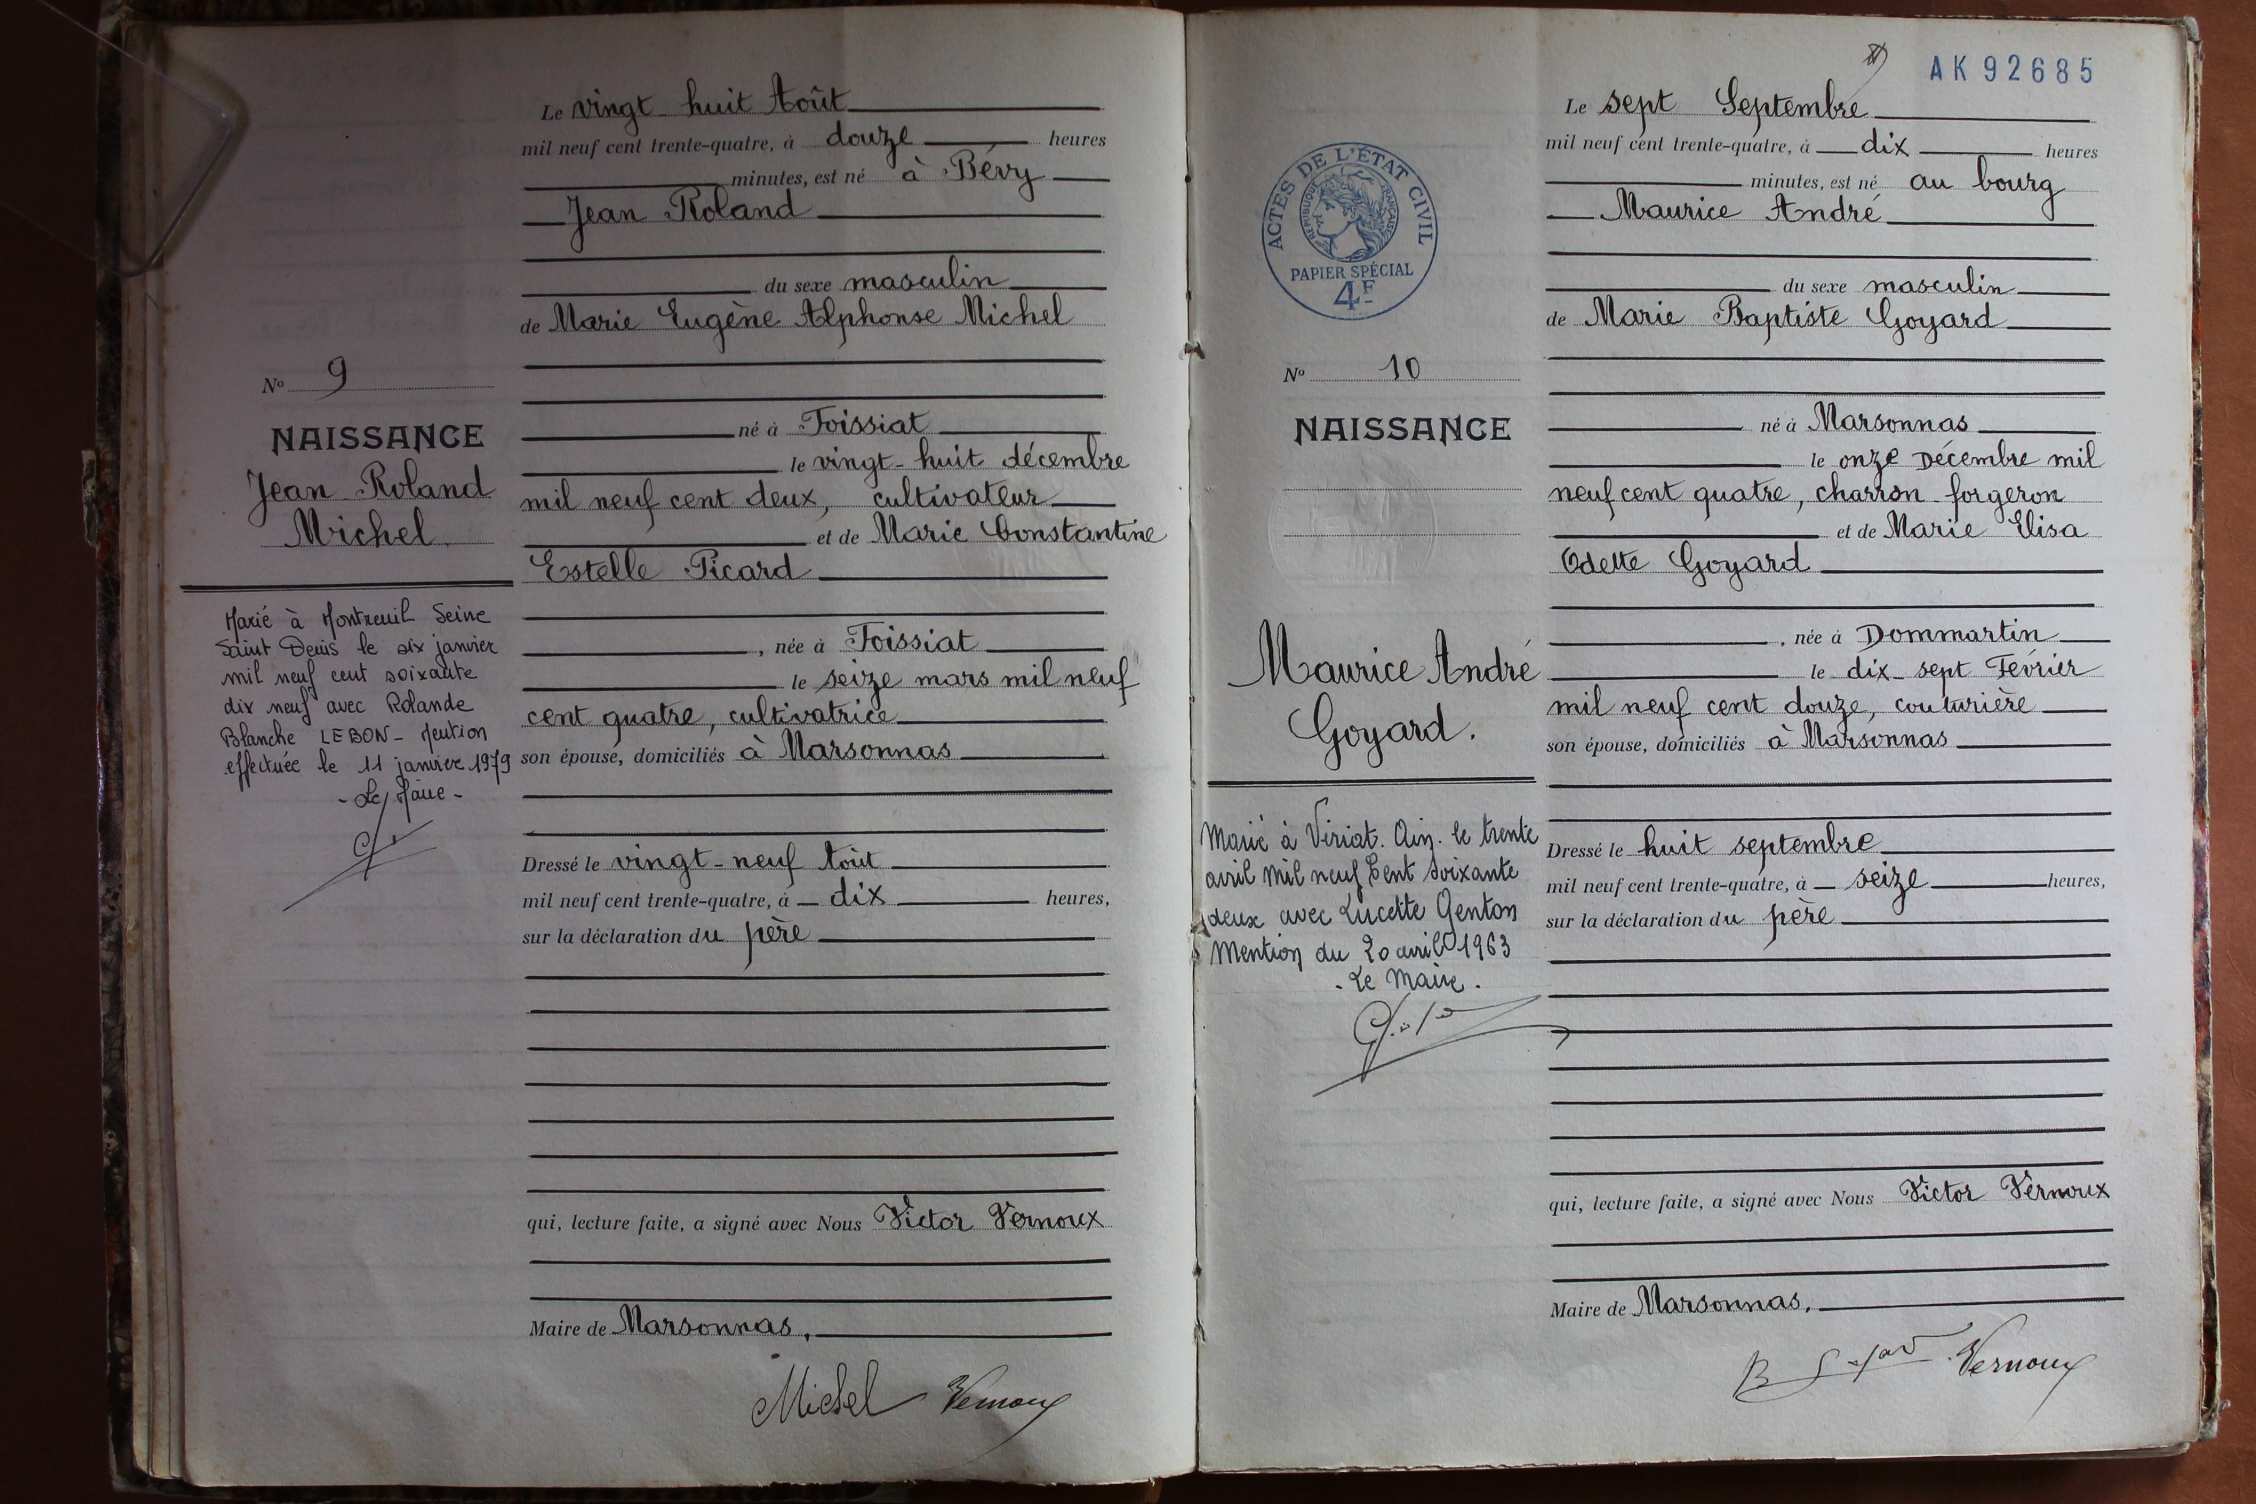 Le vingt huit Août
mil neuf cent trente-quatre, à douze heures
minutes, est né à Bévy
Jean Roland
du sexe masculin
de Marie Eugène Alphonse Michel
No 9
NAISSANCE
Jean Roland
Michel
né à Foissiat
le vingt-huit décembre
mil neuf cent deux, cultivateur
et de Marie Constantine
Estelle Picard
, née à Foissiat
le seize mars mil neuf
cent quatre, cultivatrice
son épouse, domiciliés à Marsonnas
Marié à Montreuil Seine
Saint Denis le six janvier
mil neuf cent soixante
dix neuf avec Rolande
Blanche LEBON - Mention
effectuée le 11 janvier 1979
- Le Maire -
Dressé le vingt-neuf Août
mil neuf cent trente-quatre, à dix heures,
sur la déclaration du père
qui, lecture faite, a signé avec Nous Victor Vernoux
Maire de Marsonnas,
Michel Vernoux
AK 92685
Le sept Septembre
mil neuf cent trente-quatre, à dix heures
minutes, est né au bourg
Maurice André
du sexe masculin
de Marie Baptiste Goyard
ACTES DE L'ÉTAT CIVIL
RÉPUBLIQUE FRANÇAISE
PAPIER SPÉCIAL
4F
No 10
NAISSANCE
né à Marsonnas
le onze Décembre mil
neuf cent quatre, charron-forgeron
et de Marie Elisa
Odette Goyard
, née à Dommartin
le dix-sept Février
mil neuf cent douze, couturière
son épouse, domiciliés à Marsonnas
Maurice André
Goyard.
Marié à Viriat. Ain. le trente
avril mil neuf cent soixante
deux avec Lucette Genton
Mention du 20 avril 1963
- Le Maire.
Dressé le huit septembre
mil neuf cent trente-quatre, à seize heures,
sur la déclaration du père
qui, lecture faite, a signé avec Nous Victor Vernoux
Maire de Marsonnas,
Vernoux